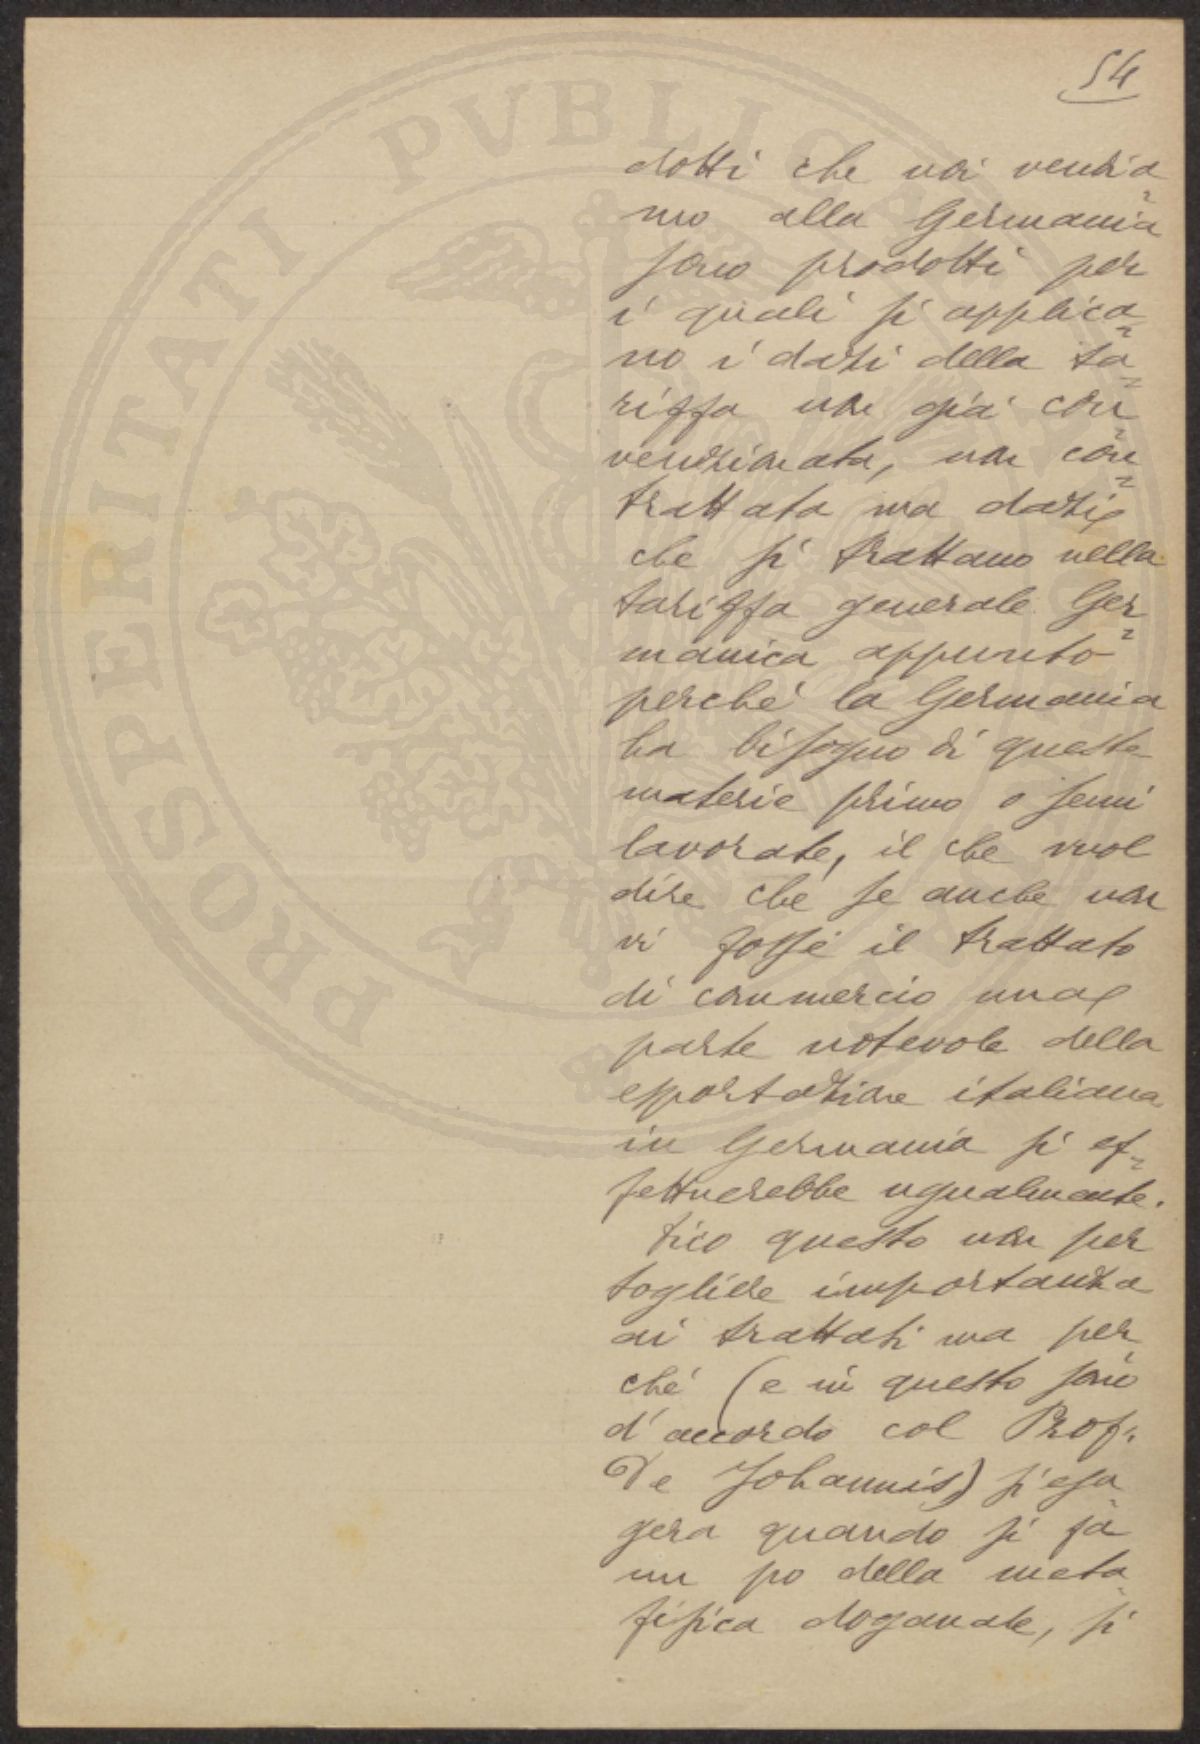 54
dotti che noi vendia=
mo alla Germania
sono prodotti per
i quali si applica=
no i dazi della ta=
riffa non già con=
venzionata, non con=
trattata ma dazi
che si trattano nella
tariffa generale Ger=
manica appunto
perché la Germania
ha bisogno di queste
materie primo o semi
lavorate, il che vuol
dire che se anche non
vi fosse il trattato
di commercio una
parte notevole della
esportazione italiana
in Germania si ef=
fettuerebbe ugualmente.
Dico questo non per
togliere importanza
ai trattati ma per
ché (e in questo sono
d'accordo col Prof.
De Johannis) si esa
gera quando si fa
un po della meta
fisica doganale, si
PROSPERITATI PVBLICAE